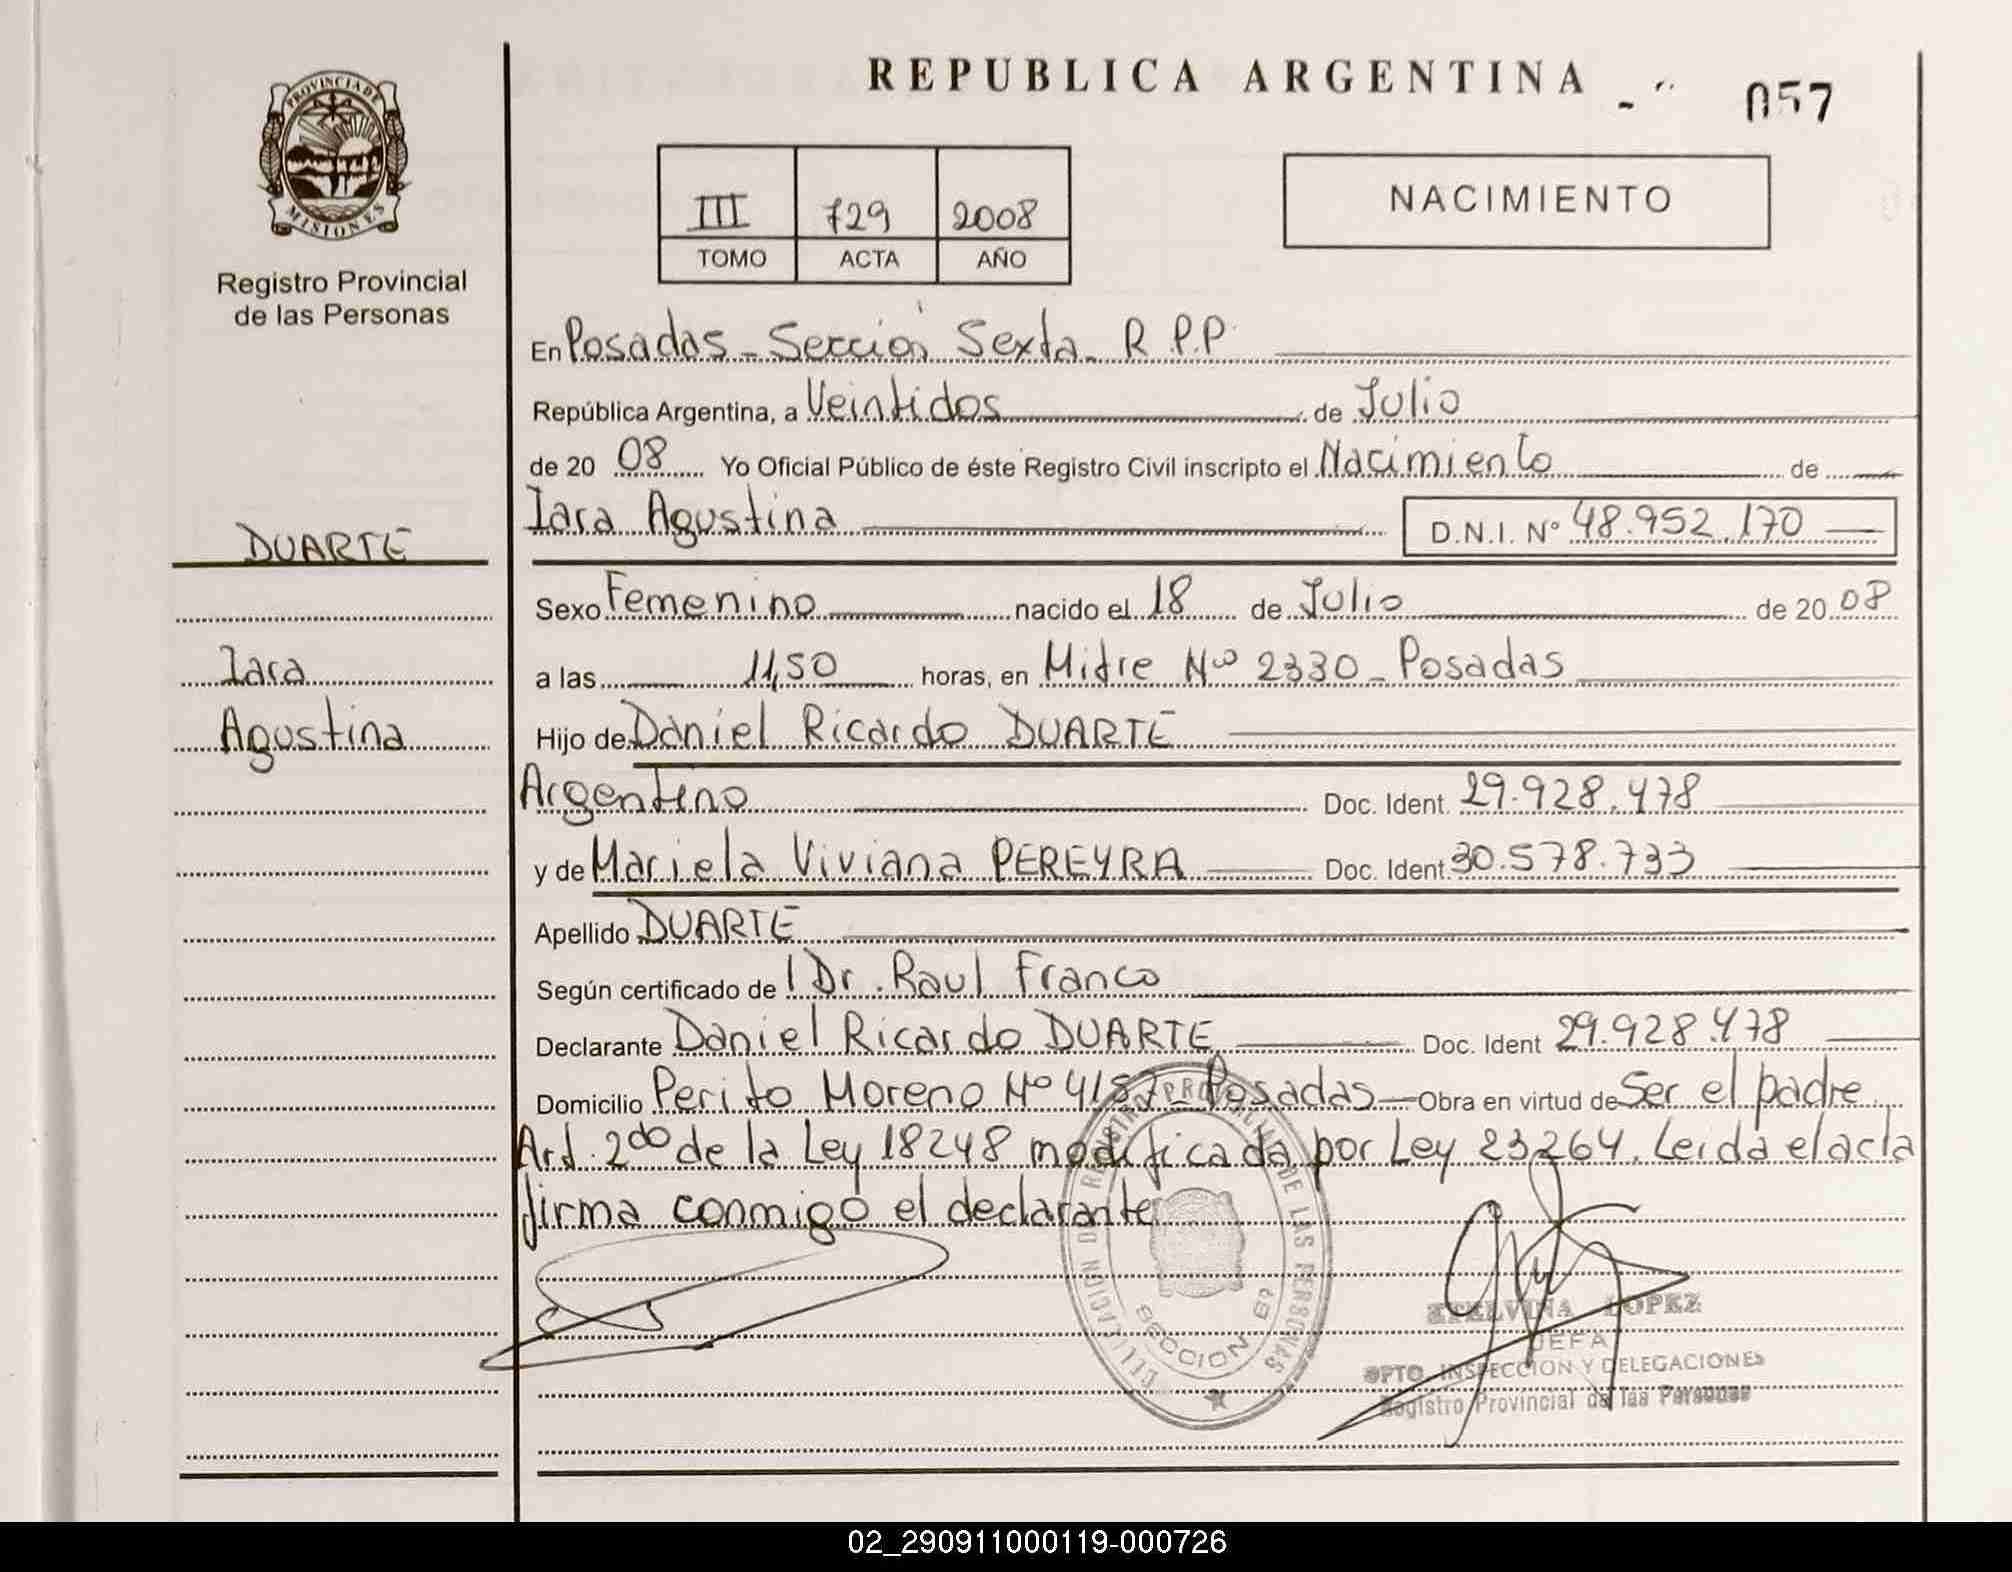 REPUBLICA ARGENTINA
057
PROVINCIA DE
MISIONES
Registro Provincial
de las Personas
III 729 2008
TOMO ACTA AÑO
NACIMIENTO
En Posadas - Sección Sexta. R P.P.
República Argentina, a Veintidos de Julio
de 20 08 Yo Oficial Público de éste Registro Civil inscripto el Nacimiento de
Iara Agustina D.N.I. Nº 48.952.170
DUARTE
Sexo Femenino nacido el 18 de Julio de 20 08
Iara
a las 11,50 horas, en Mitre Nº 2330 - Posadas
Agustina
Hijo de Daniel Ricardo DUARTE
Argentino Doc. Ident. 29.928.478
y de Mariela Viviana PEREYRA Doc. Ident. 30.578.733
Apellido DUARTE
Según certificado de l Dr. Raul Franco
Declarante Daniel Ricardo DUARTE Doc. Ident 29.928.478
Domicilio Perito Moreno Nº 4187 - Posadas - Obra en virtud de Ser el padre
Art. 2do de la Ley 18248 modificada por Ley 23264. Leida el acta
firma conmigo el declarante
DELEGACION DE REGISTRO PROVINCIAL DE LAS PERSONAS
SECCION 6ª
ETELVINA LOPEZ
JEFA
DPTO. INSPECCION Y DELEGACIONES
Registro Provincial de las Personas
02_290911000119-000726